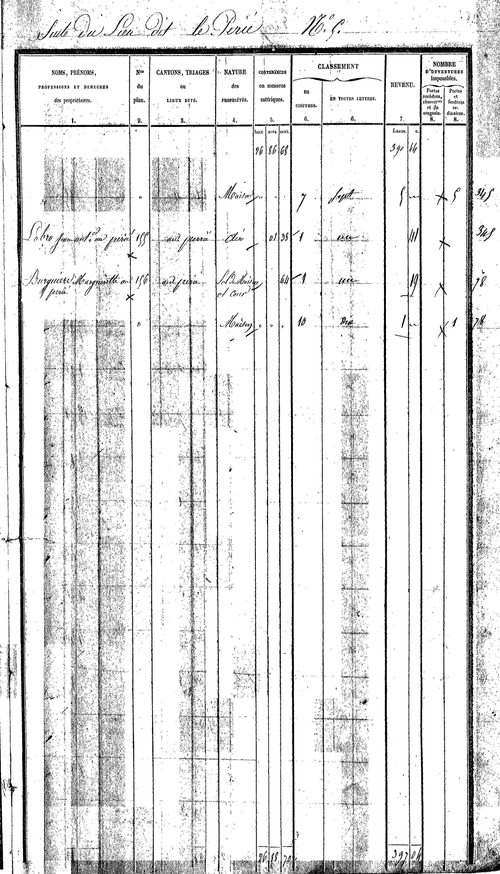 Suite du Lieu dit le Périé N.º 5.
NOMS, PRÉNOMS,
PROFESSIONS ET DEMEURES
des propriétaires.
1.
Nos
du
plan.
2.
CANTONS, TRIAGES
ou
LIEUX DITS.
3.
NATURE
des
PROPRIÉTÉS.
4.
CONTENANCES
en mesures
métriques.
5.
CLASSEMENT
EN
CHIFFRES.
6.
EN TOUTES LETTRES.
6.
REVENU.
7.
NOMBRE
D'OUVERTURES
imposables.
Portes
cochères,
charret.res
et de
magasin.
8.
Portes
et
fenêtres
ordinaires.
8.
hect. ares cent. francs. c.
26 86 68 390 14
" Maison " " " 7 Sept 5 " x 5 345
Labro au périé 155 au périé 01 38 1 un 41 x 345
x
Burguière Marguerite au 156 au périé Sol de Maison 64 1 un 19 x 78
périé x et Cour
" Maison " " " 10 Dix 1 " x 1 78
26 88 70